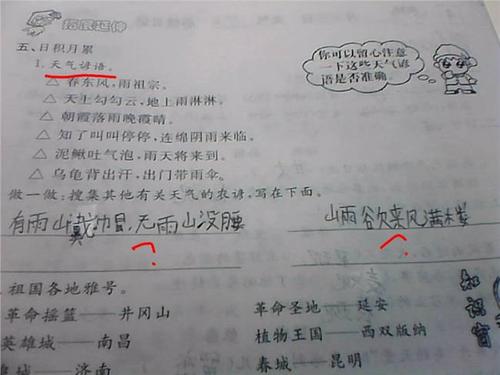 拓展延伸
五、日积月累
1. 天气谚语。
你可以留心注意
一下这些天气谚
语是否准确。
△ 春东风，雨祖宗。
△ 天上勾勾云，地上雨淋淋。
△ 朝霞落雨晚霞晴。
△ 知了叫叫停停，连绵阴雨来临。
△ 泥鳅吐气泡，雨天将来到。
△ 乌龟背出汗，出门带雨伞。
做一做：搜集其他有关天气的农谚，写在下面。
有雨山戴帽，无雨山没腰 山雨欲来风满楼
?
祖国各地雅号。
革命摇篮——井冈山 革命圣地——延安
英雄城——南昌 植物王国——西双版纳
城——济南 春城——昆明
知识窗